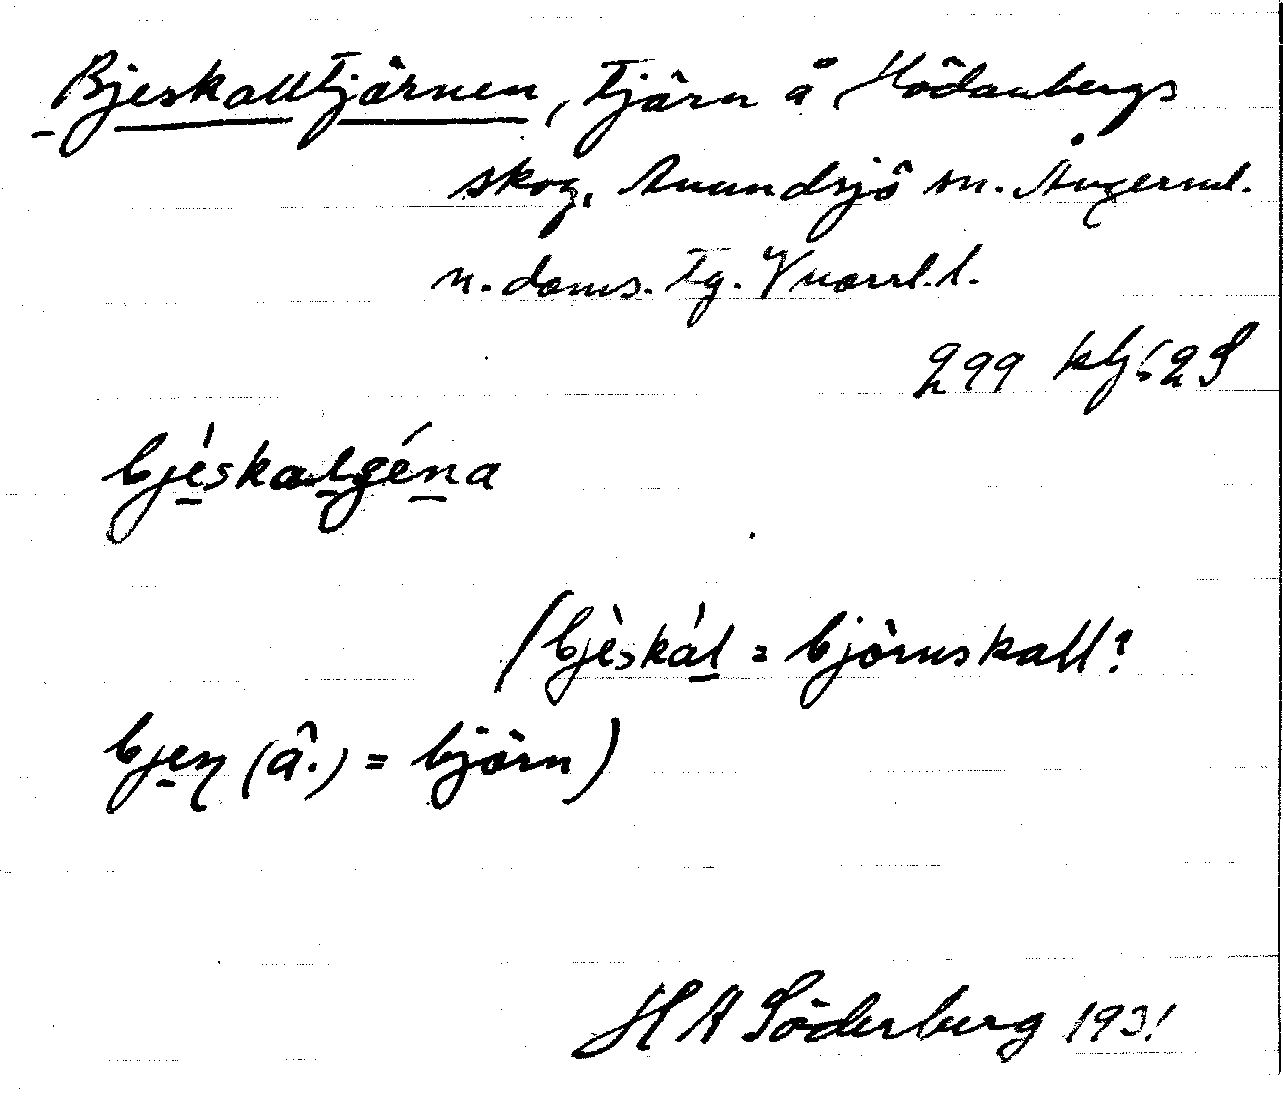 Bjeskalltjärnen, tjärn å Hädanbergs
skog, Anundsjö sn. Ångerml.
n. doms. tg.
299
bjèskalgéna
(bjèskál = björnskall?
bjen (â.) = björn)
H A Söderberg 1931